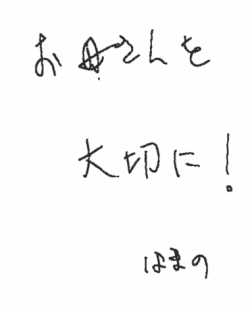 お母さんを
大切に!
はまの